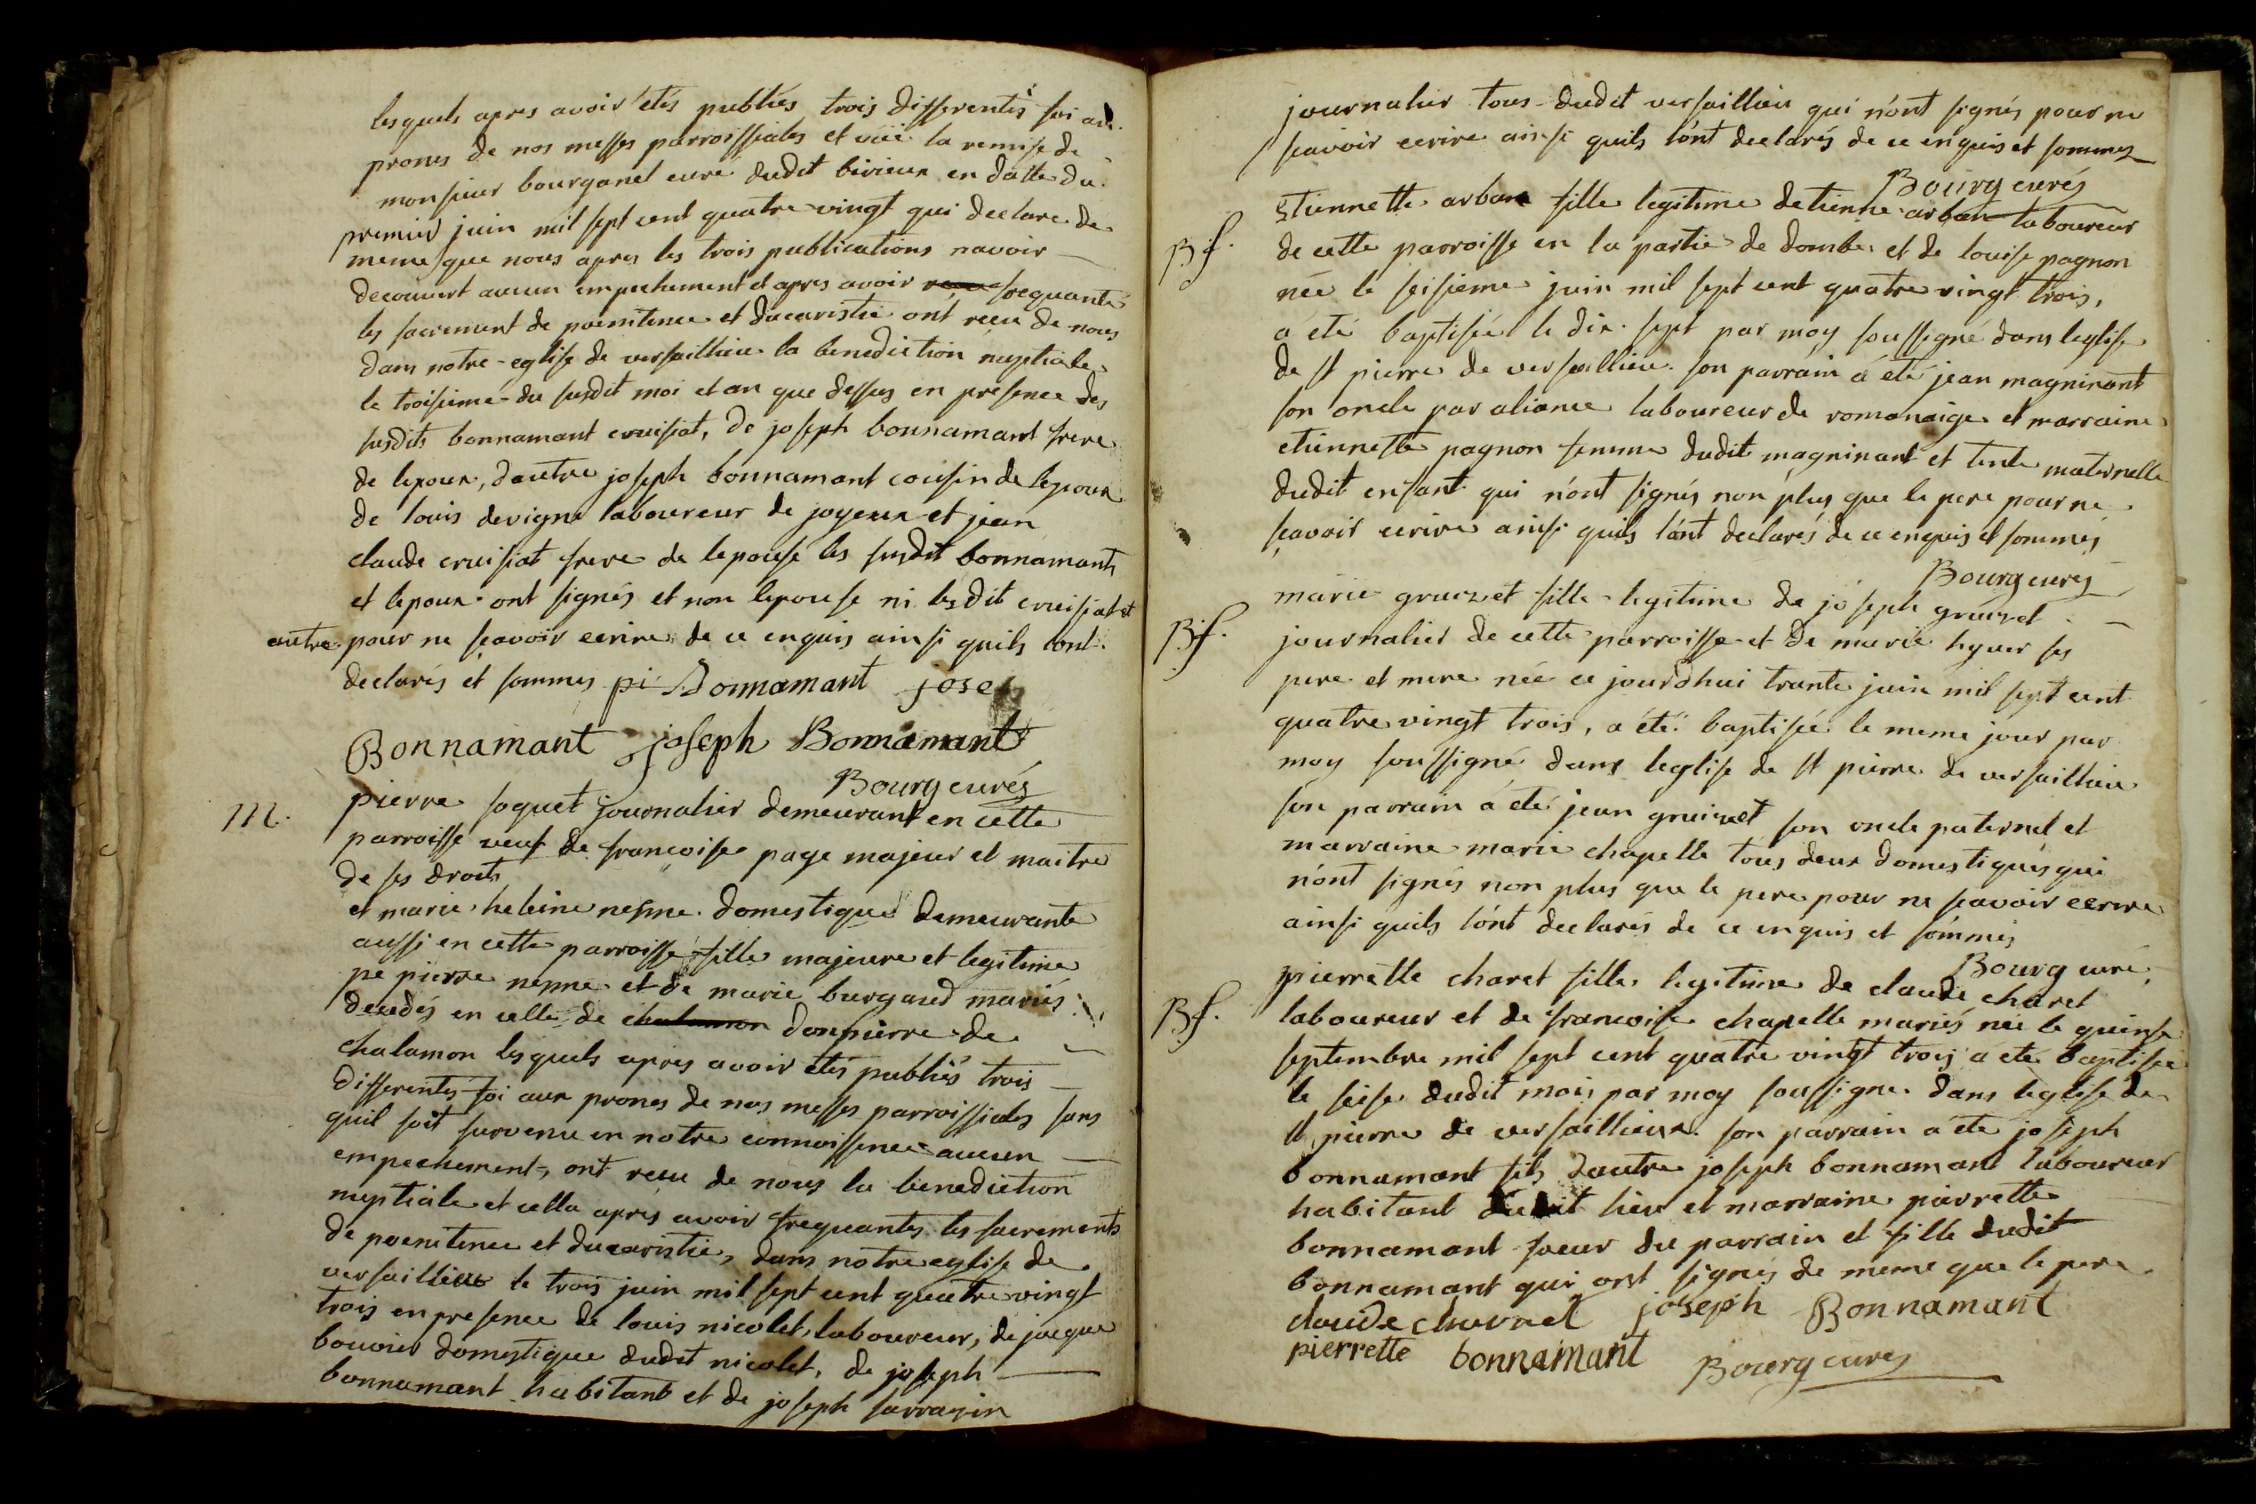 lesquels apres avoir etés publiés trois differentes foi aux
prones de nos messes parroissiales et vüe la remise de
monsieur bourganel curé dudit birieux en datte du
premier juin mil sept cent quatre-vingt qui declare de
meme que nous apres les trois publications n'avoir
decouvert aucun empechement et apres avoir frequantes
les sacrement de poenitence et ducaristie ont recu de nous
dans notre eglise de versaillieu la benediction nuptiale
le troisieme du susdit moi et an que dessus en présence des
susdits bonnamant cruisiat, de joseph bonnamant frere
de lepoux, dautre joseph bonnamant cousin de lepoux
de louis devigne laboureur de joyeux et jean
claude cruisiat frere de lepouse les susdit bonnamants
et lepoux ont signés et non lepouse ni lesdit cruisiat et
autre pour ne sçavoir ecrire de ce enquis ainsi quils lont
declarés et sommes pi Bonnamant jose
Bonnamant joseph Bonnamant
Bourg curés
m. pierre soquet journalier demeurant en cette
parroisse veuf de francoise page majeur et maitre
de ses droits
et marie heleine nesme domestique demeurante
aussi en cette parroisse fille majeure et legitime
de pierre nesme et de marie burgaud mariés
decedés en celle de chalamon donpierre de
chalamon lesquels apres avoir etés publiés trois
differentes foi aux prones de nos messes parroissiales sans
quil soit survenu en notre connoissence aucun
empechement, ont recu de nous la benediction
nuptiale et cella aprés avoir frequantes les sacrements
de poenitence et ducaristie, dans notre eglise de
versaillieux le trois juin mil sept cent quatre vingt
trois en presence de louis nicolet, laboureur, de jacque
bouvier domestique dudit nicolet, de joseph
bonnamant habitant et de joseph sarrazin
journalier tous dudit versaillieu qui n'ont signés pour ne
scavoir ecrire ainsi quils l'ont declarés de ce enquis et sommes
Bourg curés
B f. Etiennette arban fille legitime detienne arban laboureur
de cette parroisse en la partie de dombe et de louise pagnon
née le seisieme juin mil sept cent quatre vingt trois,
a eté baptisée le dix sept par moy soussigné dans leglise
de st pierre de versaillieu. son parrain a été jean magninant
son oncle par aliance laboureur de romanaige et marraine
etiennette pagnon femme dudit magninant et tente maternelle
dudit enfant qui n'ont signés non plus que le pere pour ne
sçavoir ecrire ainsi quils l'ont declarés de ce enquis et sommés
Bourg curés
B f. marie gruizet fille legitime de joseph gruizet
journalier de cette parroisse et de marie hyver ses
pere et mere née ce jourdhui trante juin mil sept cent
quatre vingt trois, a été baptisée le meme jour par
moy soussigné dans leglise de st pierre de versaillieu
son parrain a été jean gruizet son oncle paternel et
marraine marie chapelle tous deux domestiques qui
n'ont signés non plus que le pere pour ne scavoir ecrire
ainsi quils l'ont declarés de ce enquis et sommés
Bourg curé
B f. pierrette charet fille legitime de claude charet
laboureur et de francoise chapelle mariés née le quinse
septembre mil sept cent quatre vingt trois a ete baptisée
le seise dudit mois par moy soussigne dans leglise de
st pierre de versaillieux. son parrain a ete joseph
bonnamant fils dautre joseph bonnamant laboureur
habitant dudit lieu et marraine pierrette
bonnamant soeur du parrain et fille dudit
bonnamant qui ont signés de meme que le pere
claude charnet joseph Bonnamant
pierrette bonnamant Bourg curés